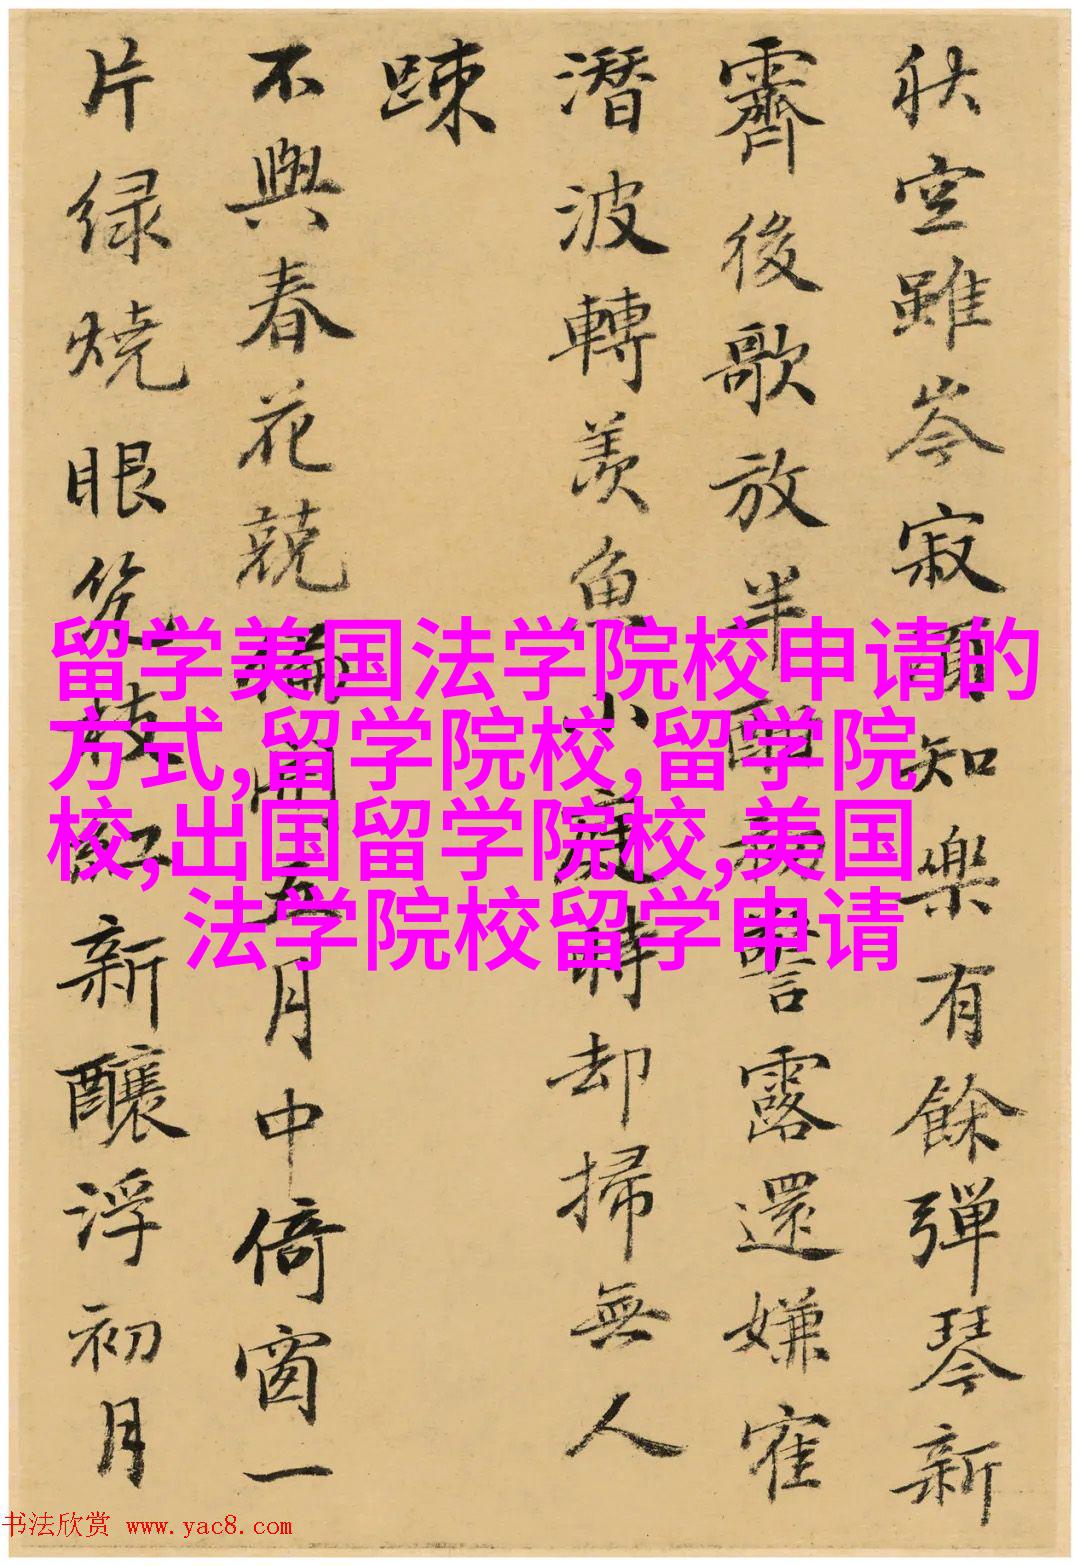 秋空雖岑寂知樂有餘彈琴新
霽後歌放半酣初警露還嫌寉
潛波轉羨魚小庭時却掃無人
踈
不與春花競開五月中倚窗一
片緑燒眼枝紅新釀浮初月
留学美国法学院校申请的
方式,留学院校,留学院
校,出国留学院校,美国
法学院校留学申请
书法欣赏 www.yac8.com